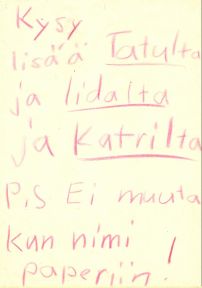 Kysy
lisää Tatulta
ja Iidalta
ja Katrilta
P.S Ei muuta
kun nimi
paperiin!